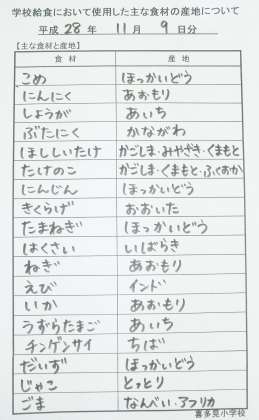 学校給食において使用した主な食材の産地について
平成 28 年 11 月 9 日分
【主な食材と産地】
食材 産地
こめ ほっかいどう
にんにく あおもり
しょうが あいち
ぶたにく かながわ
ほししいたけ かごしま・みやざき・くまもと
たけのこ かごしま・くまもと・ふくおか
にんじん ほっかいどう
きくらげ おおいた
たまねぎ ほっかいどう
はくさい いばらき
ねぎ あおもり
えび インド
いか あおもり
うずらたまご あいち
チンゲンサイ ちば
だいず ほっかいどう
じゃこ とっとり
ごま なんべい・アフリカ
喜多見小学校